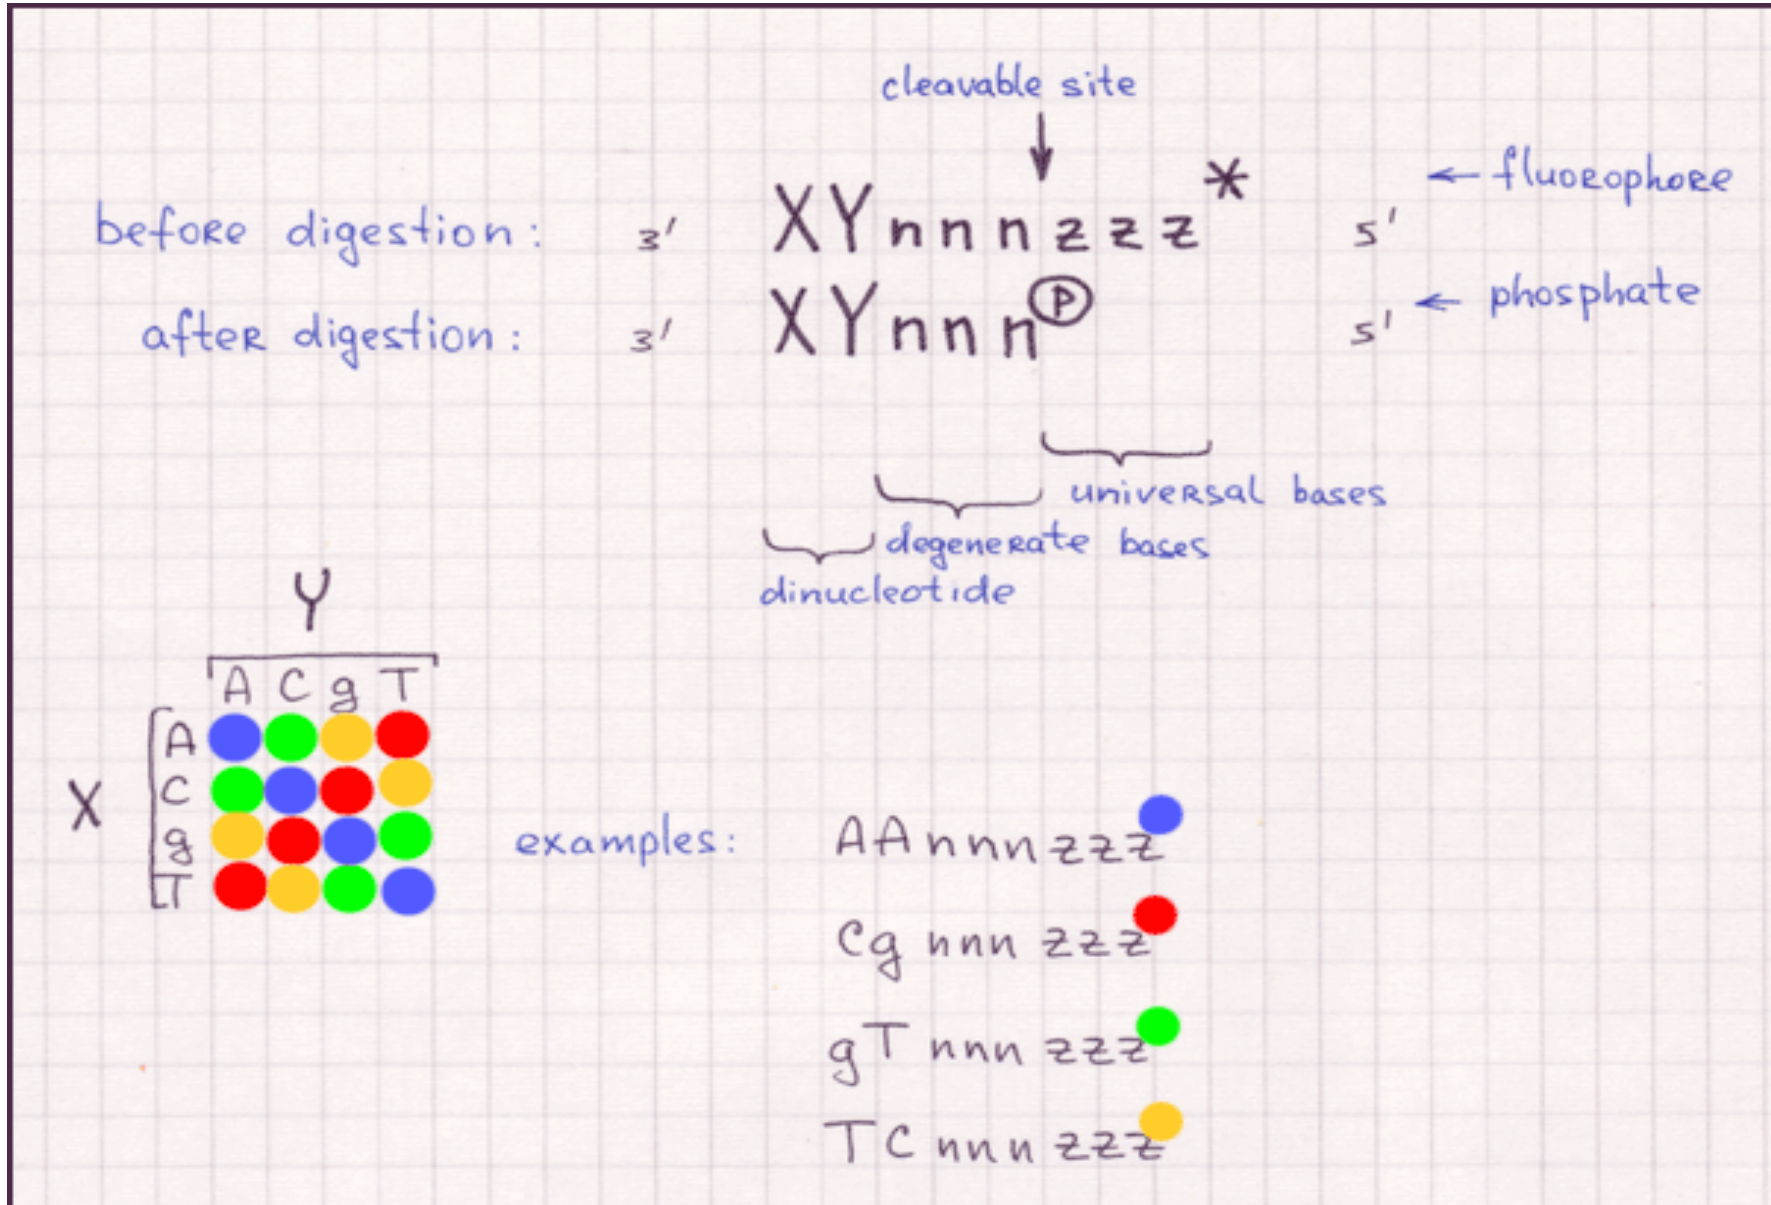 cleavable site
before digestion: 3' XYnnnzzz* 5' ← fluorophore
after digestion: 3' XYnnnⓟ 5' ← phosphate
universal bases
degenerate bases
dinucleotide
Y
A C g T
X
A
C
g
T
examples:
AAnnnzzz
Cgnnnzzz
gTnnnzzz
TCnnnzzz